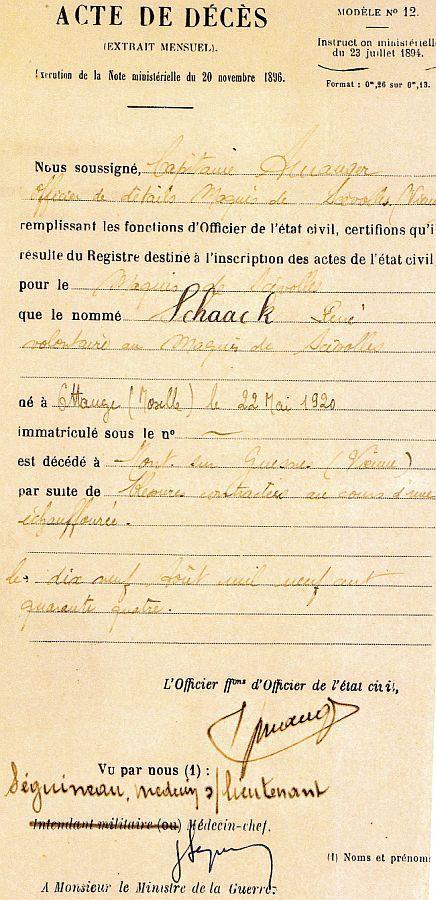 ACTE DE DÉCÈS
(EXTRAIT MENSUEL).
Exécution de la Note ministérielle du 20 novembre 1896.
MODÈLE No 12.
Instruction ministérielle
du 23 juillet 1894.
Format : 0m,26 sur 0m,13.
Nous soussigné, Capitaine
officier de détails Maquis de Scévolles (Vienne
remplissant les fonctions d'Officier de l'état civil, certifions qu'i
résulte du Registre destiné à l'inscription des actes de l'état civil
pour le Maquis de Scévolles
que le nommé Schaack René
volontaire au Maquis de Scévolles
né à Ottange (Moselle) le 22 Mai 1920
immatriculé sous le no ~
est décédé à Mont sur Guesne (Vienne)
par suite de blessures contractées au cours d'une
échauffourée.
le dix neuf Août mil neuf cent
quarante quatre.
L'Officier ffons d'Officier de l'état civil,
Vu par nous (1) :
Séguineau, medecin s/lieutenant
Intendant militaire (ou) Médecin-chef,
(1) Noms et prénoms
A Monsieur le Ministre de la Guerre